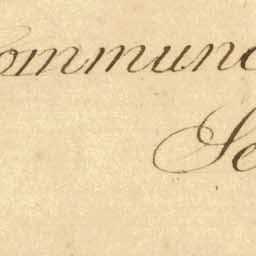 ommun
Se